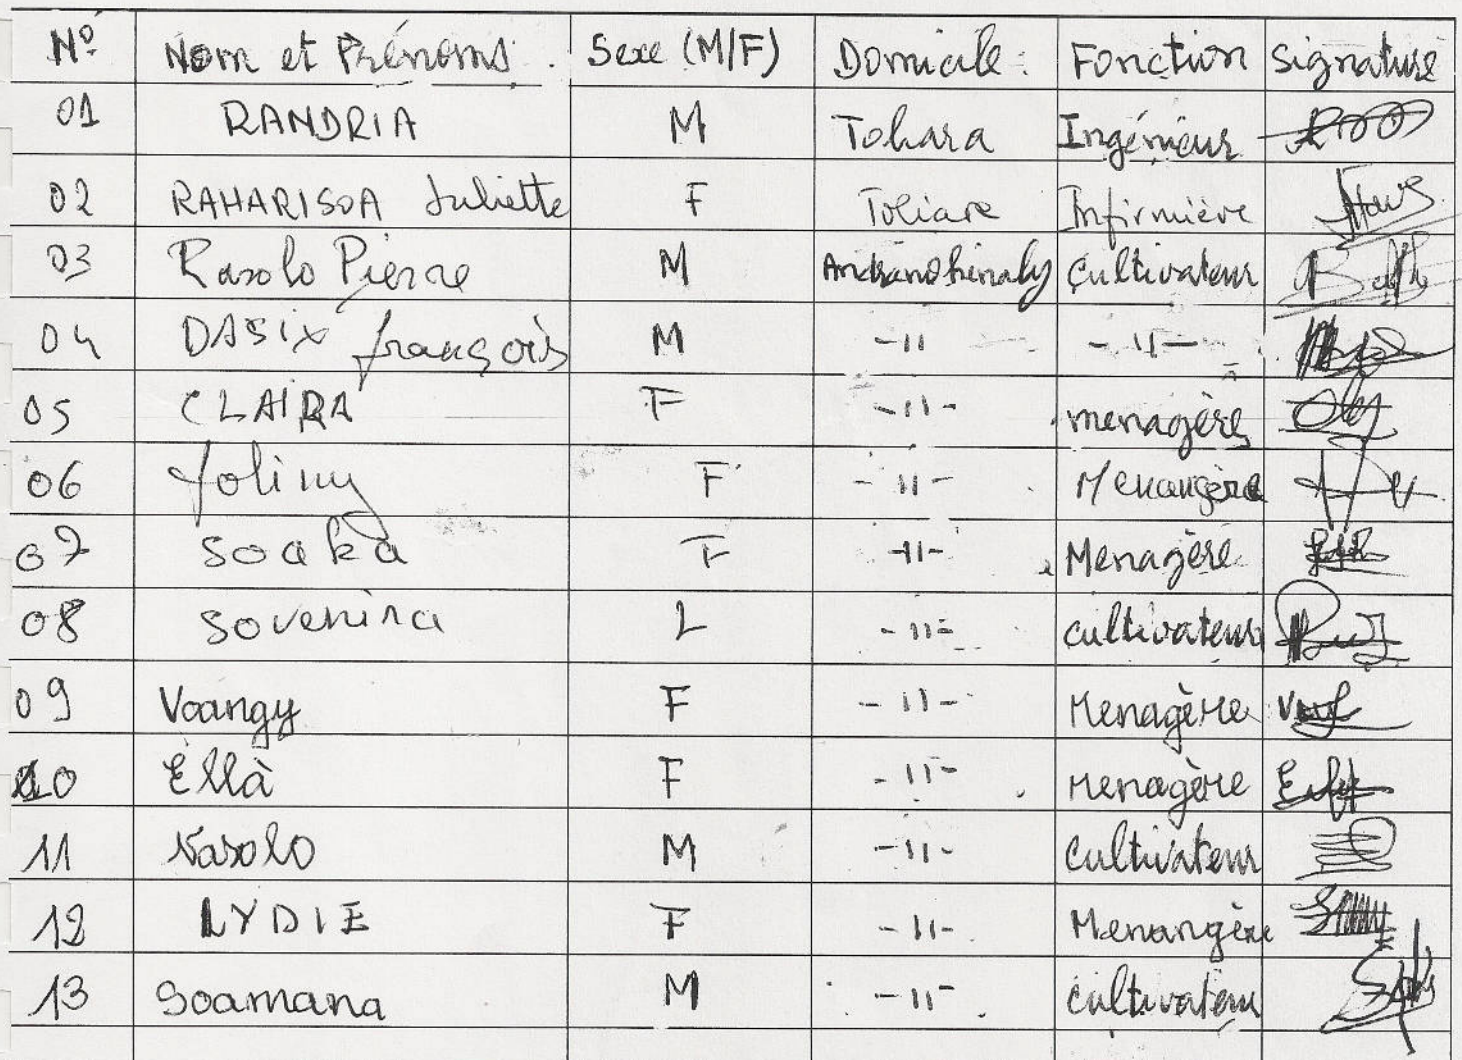 N° Nom et Prénoms. Sexe (M/F) Domicile: Fonction Signature
01 RANDRIA M Tohara Ingénieur
02 RAHARISOA Juliette F Toliara Infirmière
03 Rasolo Pierre M Cultivateur
04 DASIX françois M -11 -11-
05 CLAIRA F -11- menagère
06 foliny F -11- Menangère
07 Soaka F -11- Menagère
08 Sovenira L -11- cultivateur
09 Voangy F -11- Menagère
10 Ellà F -11- Menagère
11 Nasolo M -11- Cultivateur
12 LYDIE F -11- Menangère
13 Soamana M -11- cultivateur